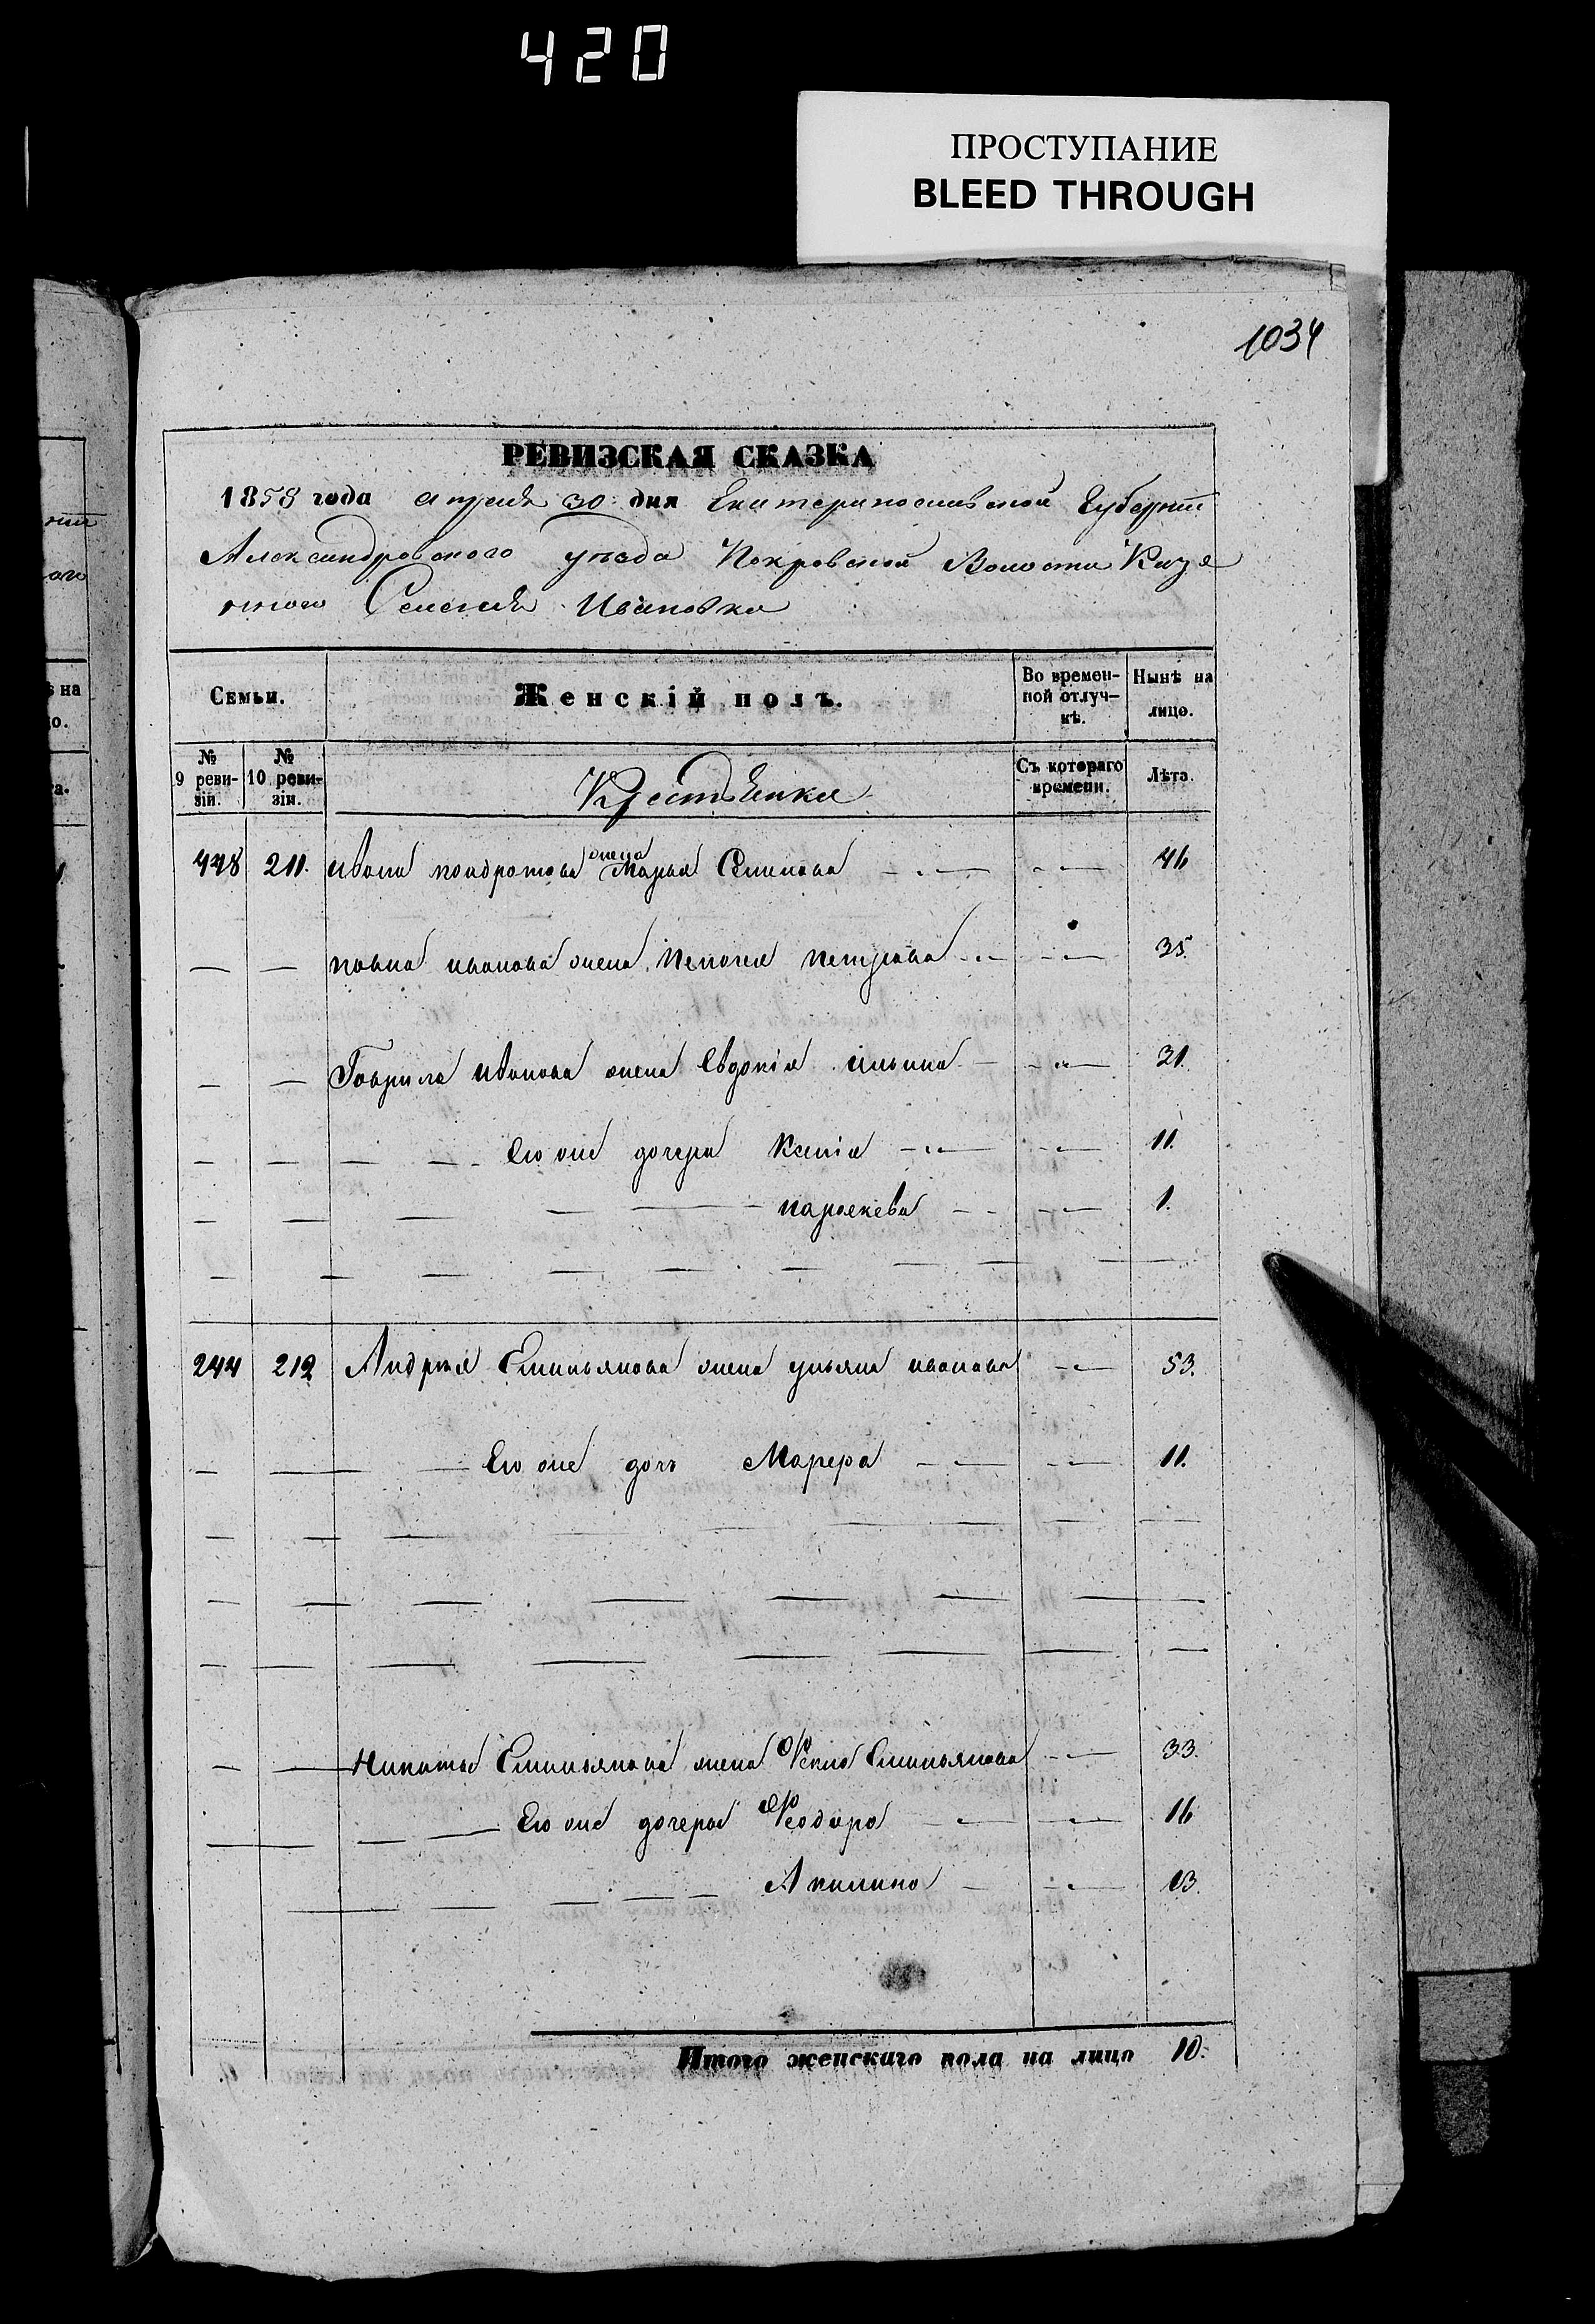 420
ПРОСТУПАНИЕ
BLEED THROUGH
1034
РЕВИЗСКАЯ СКАЗКА
1858 года апреля 30 дня Екатеринославской Губернии
Александровского уезда Покровской Волости Казе
нного Селения Ивановки
Семьи. Женскій полъ. Во времен-ной отлуч-кѣ. Нынѣ на лицо.
№ 9 реви-зіи. № 10 реви-зіи. Крестьянка Съ котораго времени. Лѣта.
448 211. Ивана кондротова жена Марья Семенова 46
павла иванова жена Пелогея петрова 35.
Гаврила Иванова жена Евдокія ильина 31.
Его же дочери Ксенія 11.
параскева 1.
244 212 Андрея Емильянова жена ульяна иванова 53.
Его же дочь Марфа 11.
Никиты Емильянова жена Фекла Емильянова 33.
Его же дочери Феодора 16
Акилина 13.
Итого женскаго пола на лицо 10.